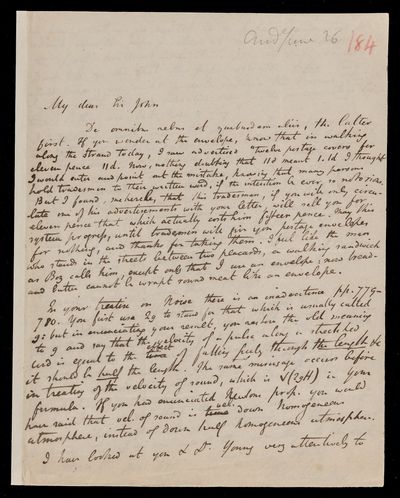 Ansd June 26
184
My dear Sir John
De omnibus rebus et quibusdam aliis, the latter
first. If you wonder at the envelope, know that in walking
along the Strand today, I saw advertised "twelve postage covers for
eleven pence 11d. Now, nothing doubting that 11d meant 1.1d I thought
I would enter and point out the mistake, knowing that many persons
hold tradesmen to their written word, if the intention be ever so not
But I found, me herclé, that this tradesman, if you will only circu-
late one of his advertisements with your letter will sell you for
eleven pence that which actually cost him fifteen pence. May this
system progress, until tradesmen will give you postage envelopes
for nothing, and thanks for taking them. I feel like the man
who stands in the streets between two placards, a walking sandwich
as Boz calls him, except only that I use an envelope; now bread-
and butter cannot be wrapt round meat like an envelope.
In your treatise on Noise there is an inadvertence pp. 779-
780. You first use 2g to stand for that which is usually called
g: but in enunciating your result, you restore the old meaning
to g and say that the velocity of a pulse along a stretched
cord is equal to the effect of falling freely through the length &c
it should be half the length. The same miscarriage occurs before
in treating of the velocity of sound, which is √(2gH) in your
formula. If you had enunciated Newtons prop. you would
have said that vel. of sound is vel. down homogeneous
atmosphere, instead of down half homogeneous atmosphere.
I have looked at you & Dr. Young very attentively to